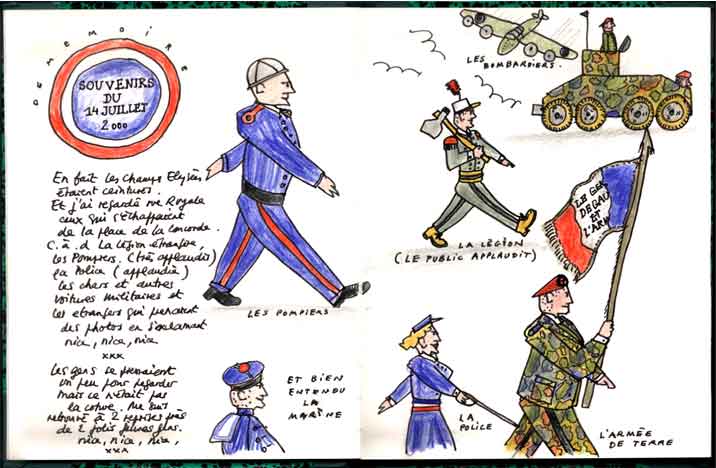 DE MEMOIRE
SOUVENIRS
DU
14 JUILLET
2000
En fait les Champs Elysées
étaient ceinturés.
Et j'ai regardé rue Royale
ceux qui s'échappaient
de la place de la Concorde.
C. à. d La Légion étrangère,
les Pompiers. (très applaudis)
la Police (applaudie)
les chars et autres
voitures militaires et
les étrangers qui prenaient
des photos en s'exclamant
nice, nice, nice
xxx
Les gens se pressaient
un peu pour regarder
mais ce n'était pas
la cohue. Me suis
retrouvé à 2 reprises près
de 2 jolis jeunes
nice, nice, nice,
xxx
LES POMPIERS
ET BIEN
ENTENDU
LA
MARINE
LES BOMBARDIERS.
LA LÉGION
(LE PUBLIC APPLAUDIT)
LE GEN
DE GAU
ET
L'ARM
LA
POLICE
L'ARMÉE
DE TERRE